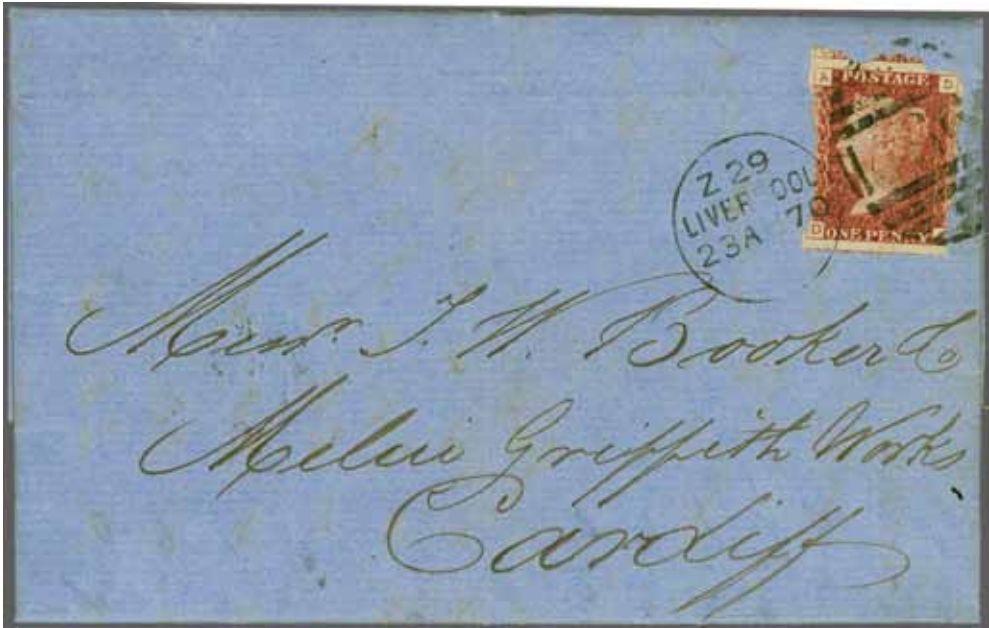 A POSTAGE D
D ONE PENNY
Z 29
LIVERPOOL
23A 70
Messrs. T. W. Booker & Co
Melin Griffith Works
Cardiff